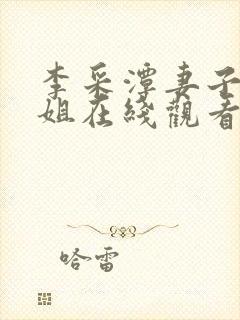 李采潭妻子
姐在綫觀看
哈雷